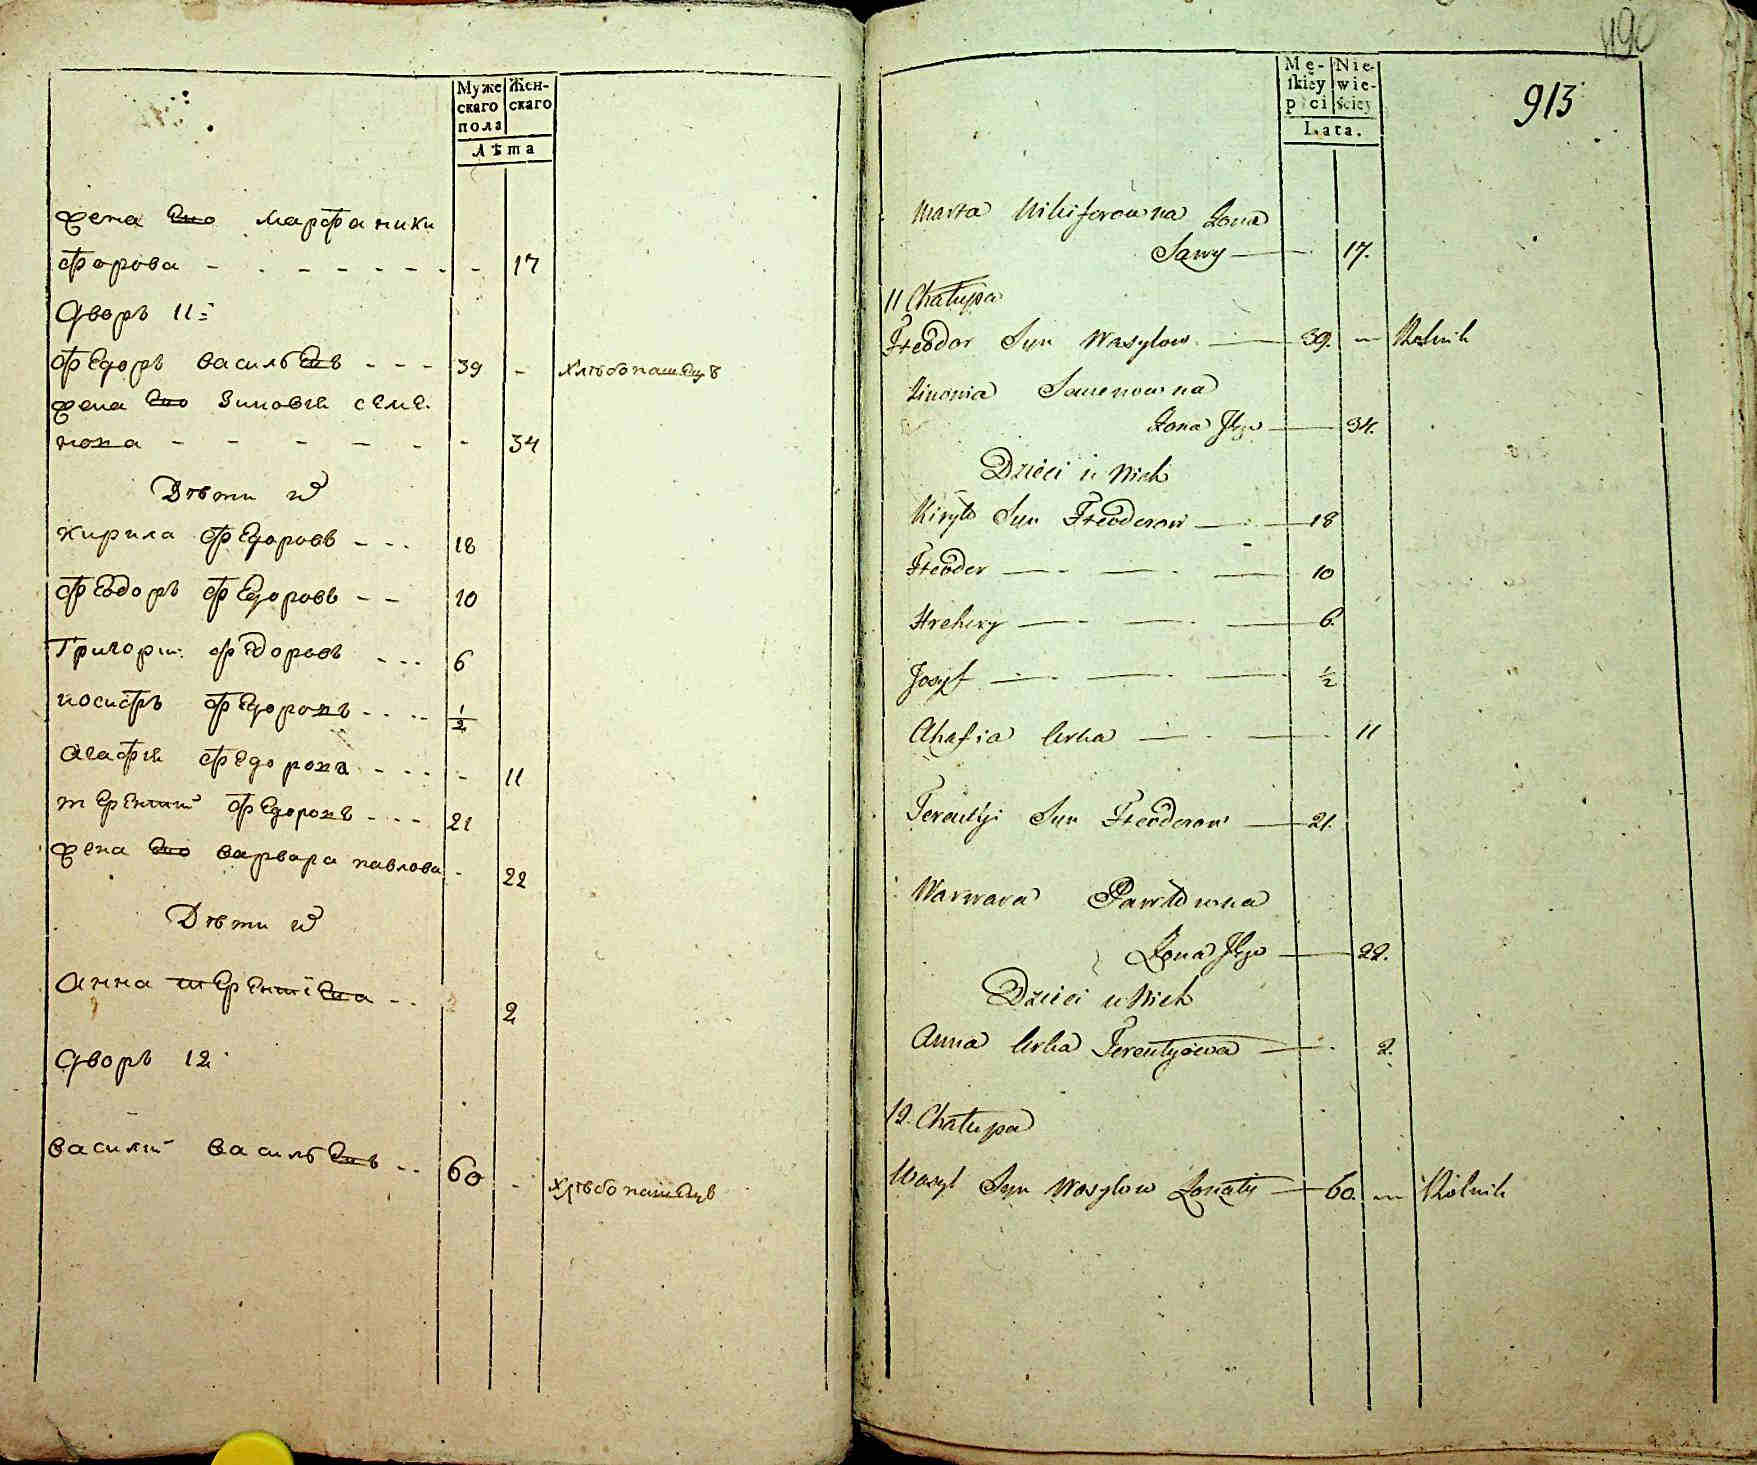 Муже Жен-
скаго скаго
пола
Лѣта
жена Его марфа ники
форова - - - - - - - 17
Дворъ 11:
федоръ васильЕвъ - - - 39 - хлѣбопашЕцъ
жена Его Зиновiя сЕмЕ.
нова - - - - - - 34
Дѣти их
кирила фЕдоровъ - - - 18
фЕодоръ фЕдоровъ - - 10
Григорiй фЕдоровъ - - - 6
иосифъ фЕдоровъ - - - - 1/2
агафiя фЕдорова - - - - 11
тЕрЕнтiй фЕдоровъ - - - - 21
жена Его варвара павлова - 22
Дѣти их
анна тЕрЕнтiЕва - - 2
Дворъ 12
василiй васильЕвъ - - 60 - хлѣбопашЕцъ
490
913
Mę- Nie-
skiey wie-
płci ściey
Lata.
Marta Nikiforowna Zona
Sawy — 17.
11 Chałupa
Fteodor Syn Wasylow — 39. — Rolnik
Zinowia Semenowna
Zona Jłgo — 34.
Dzieci u Nich
Kiryło Syn Fteodorow — 18
Fteodor — — — 10
Hrehory — — — 6.
Josyf — — — 1/2
Ahafia Corka — — 11
Terentyi Syn Fteodorow — 21.
Warwara Pawłowna
Zona Jłgo — 22.
Dzieci u Nich
Anna Corka Terentyiowa — 2.
12. Chałupa
Wasyl Syn Wasylow Zonaty — 60. — Rolnik